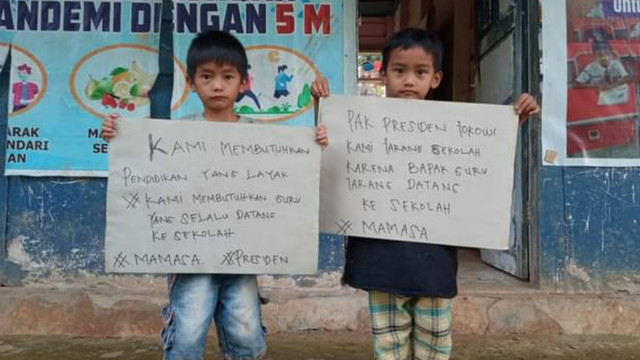 ANDEMI DENGAN 5 M
ARAK
NDARI
AN
KAMI MEMBUTUHKAN
PENDIDIKAN YANG LAYAK
# KAMI MEMBUTUHKAN GURU
YANG SELALU DATANG
KE SEKOLAH
# MAMASA. #PRESIDEN
PAK PRESIDEN JOKOWI
KAMI JARANG SEKOLAH
KARENA BAPAK GURU
JARANG DATANG
KE SEKOLAH
# MAMASA